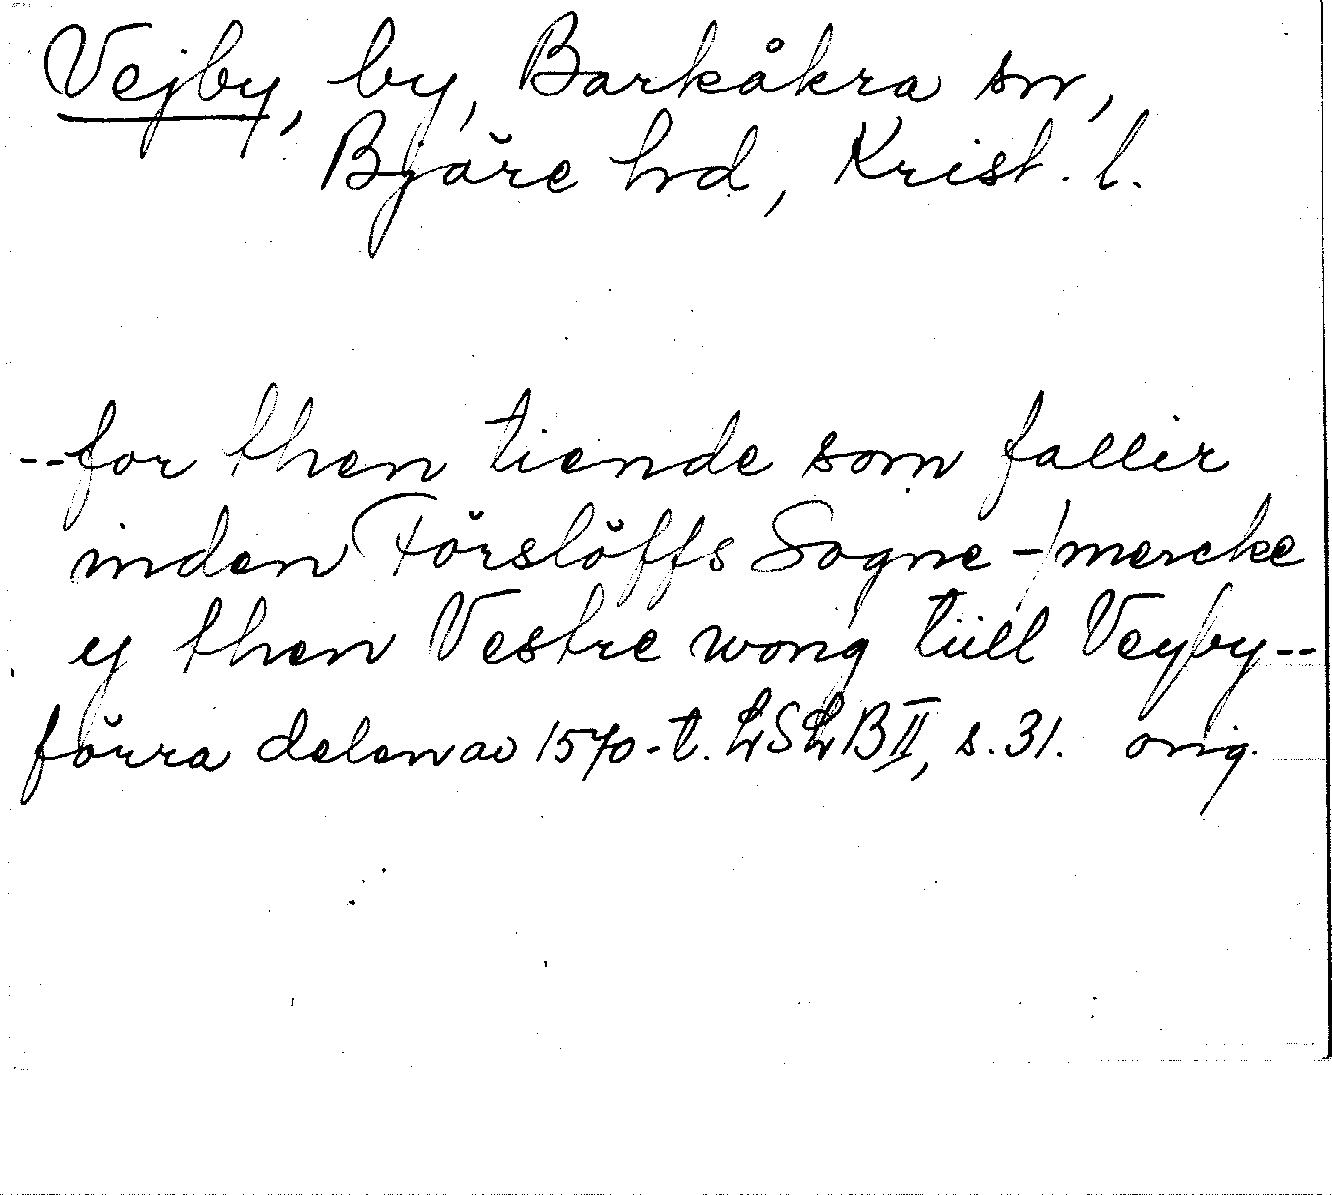 Vejby, by, Barkåkra sn,
Bjäre hd, Krist. l.
--for then tiende som fallir
inden Förslöffs Sogne-/mercke
y then Vestre wong tüll Veyby--
förra delen av 1570-t. LSLB II, s. 31. orig.